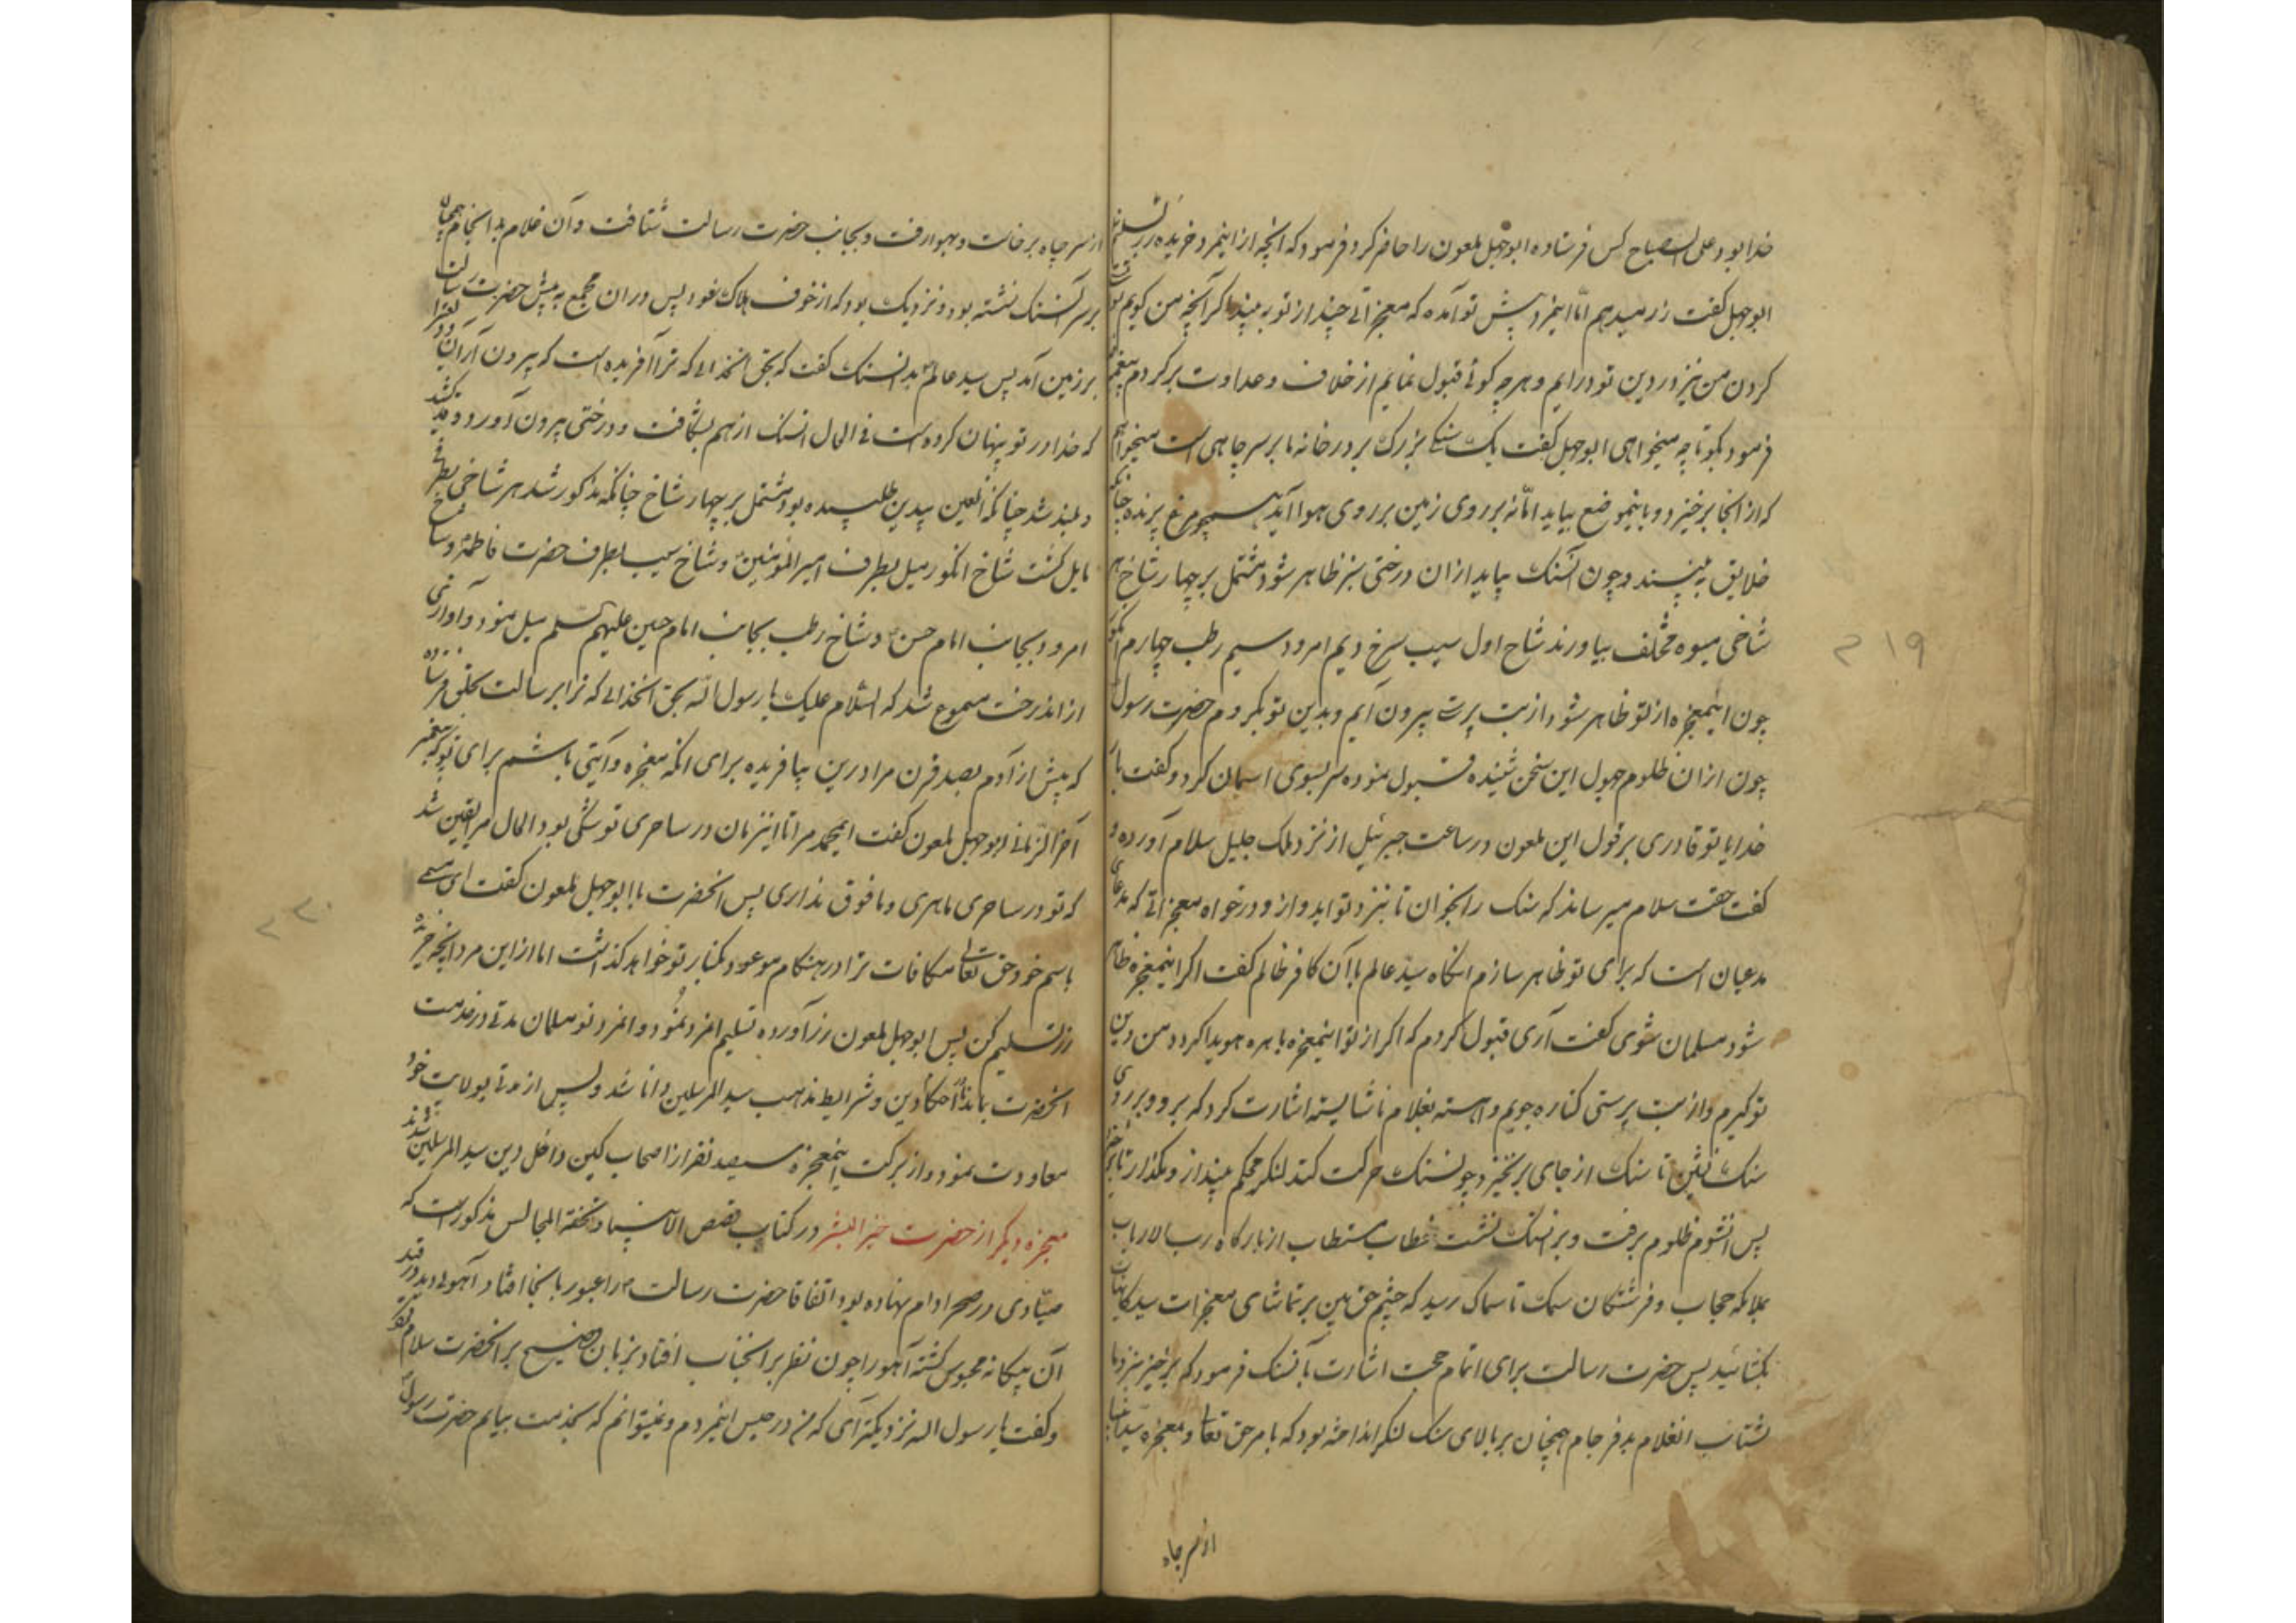 خدا بود علی الصباح کس فرستاده ابوجهل ملعون را حاضر کرد فرمود که آنچه ازاینمرد خریده زر تسلیم
ابوجهل کفت زر میدهم امّا اینمرد پیش تو آمده که معجزاتی چند از تو به بیند اکر آنچه من کویم تو
کردن من نیز در دین تو درایم و هرچه کوئی قبول نمایم از خلاف و عداوت برکردم پیغمبر
فرمود بکو تا چه میخواهی ابوجهل کفت یک سنکی بزرک بر در خانه ما بر سر چاهی است میخواهم
که از انجا برخیزد و باینموضع بیاید امّا نه بر روی زمین بر روی هوا آید همچو مرغ پرنده چنانکه
خلایق به بینند و چون آنسنک بیاید ازان درختی سبز ظاهر شود مشتمل بر چهار شاخ هر
شاخی میوه مختلف بیاورند شاخ اول سیب سرخ دیم امرود سیم رطب چهارم انکور
چون اینمعجزه از تو ظاهر شود از بت پرستی بیرون آیم و بدین تو بکروم حضرت رسول
چون ازان ظلوم جهول این سخن شنیده قبول نموده سر بسوی اسمان کرد و کفت بار
خدایا تو قادری بر قول این ملعون در ساعت جبرئیل از نزد ملک جلیل سلام آورده و
کفت حقت سلام میرساند که سنک را بخوان تا بنزد تو اید و از و درخواه معجزاتی که مدعای
مدعیان است که برای تو ظاهر سازم انکاه سید عالم با آن کافر ظالم کفت اکر اینمعجزه ظاهر
شود مسلمان شوی کفت آری قبول کردم که اکر از تو اینمعجزه باهره هویدا کردد من دین
تو کیرم و از بت پرستی کناره جویم و اهسته بغلام ناشایسته اشارت کرد که برو و بر روی
سنک نشین تا سنک از جای برنخیزد و چون سنک حرکت کند لنکر محکم بینداز و مکذار تا برخیزد
پس انشوم ظلوم برفت و بر انسنک نشست خطاب مستطاب از بارکاه رب الارباب
بملائکه حجاب و فرشتکان سمک تا سماک رسید که چشم حق بین بر تماشای معجزات سید کاینات
بکشائید پس حضرت رسالت برای اتمام حجت اشارت بآنسنک فرمود که برخیز بنزد ما
بشتاب انغلام بدفرجام همچنان بر بالای سنک لنکر انداخته بود که بامر حق تعالی و معجزه سید انبیا
از سر چاه
۲۱۹
از سر چاه برخاست و بهوا رفت و بجانب حضرت رسالت شتافت و آن غلام بد انجام همچنان
بر سر آنسنک نشسته بود و نزدیک بود که از خوف هلاک شود پس دران مجمع به پیش حضرت رسالت
بر زمین آمد پس سید عالم بدانسنک کفت که بحق انخدائی که ترا آفریده است که بیرون آر آن
که خدا در تو پنهان کرده است فی الحال انسنک از هم بشکافت و درختی بیرون آورد و قد کشید
و بلند شد چنانکه انلعین بیدین طلبیده بود مشتمل بر چهار شاخ چنانکه مذکور شد هر شاخی بطرفی
مایل کشت شاخ انکور میل بطرف امیرالمؤمنین و شاخ سیب بطرف حضرت فاطمه و شاخ
امرود بجانب امام حسن و شاخ رطب بجانب امام حسین علیهم السلم میل نمود و آوازی
ازاندرخت مسموع شد که السلام علیک یا رسول الله بحق انخدائی که ترا برسالت بخلق فرستاده
که پیش از آدم بصد قرن مرا درین بیافریده برای انکه معجزه و آیتی باشم برای تو که پیغمبر
آخرالزمانی ابوجهل ملعون کفت ایمحمد مرا تا اینزمان در ساحری تو شکی بود الحال مرا یقین شد
که تو در ساحری ماهری و مافوق نداری پس انحضرت با ابوجهل ملعون کفت ای
باسم خود حق تعالی مکافات ترا در هنکام موعود بکنار تو خواهد کذاشت اما ازاین مرد انچه خریدۀ
زر تسلیم کن پس ابوجهل ملعون زر آورده تسلیم انمرد نمود و انمرد نو مسلمان مدتی در خدمت
انحضرت بماند تا احکام دین و شرایط مذهب سید المرسلین دانا شد و پس از مدتی بولایت خود
معاودت نمود و از برکت اینمعجزه سیصد نفر از اصحاب کین داخل دین سید المرسلین شدند
معجزه دیکر از حضرت خیر البشر در کتاب قصص الانبیا و تحفة المجالس مذکور است که
صیّادی در صحرا دام نهاده بود اتفاقا حضرت رسالت را عبور بانجا افتاد آهوئی دید در قید
آن بیکانه محبوس کشته آهو را چون نظر بر انجناب افتاد بزبان فصیح بر انحضرت سلام کرد
و کفت یا رسول الله نزدیکتر آی که من در حبس اینمردم و نمیتوانم که بخدمت بیایم حضرت رسول
۲۲۰